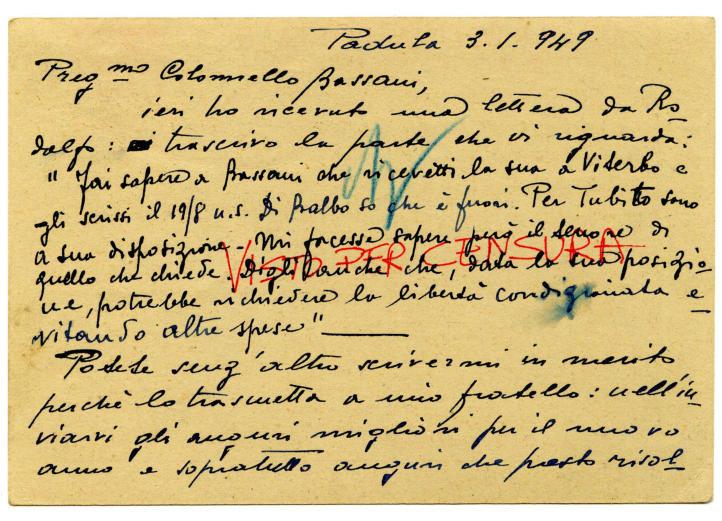 Padula 3.1.949
Preg.mo Colonnello Bassani,
ieri ho ricevuto una lettera da Ro
dolfo: trascrivo la parte che vi riguarda:
"Fai sapere a Bassani che ricevetti la sua a Viterbo e
gli scrissi il 19/8 u.s. Di Balbo so che è fuori. Per Tubito sono
a sua disposizione. Mi facesse sapere però il tenore di
quello che chiede. Digli anche che, data la sua posizio-
VISTO PER CENSURA
ne, potrebbe richiedere la libertà condizionata e-
vitando altre spese"
Potete senz'altro scrivermi in merito
perchè lo trasmetta a mio fratello: nell'in-
viarvi gli auguri migliori per il nuovo
anno e sopratutto auguri che presto risol-